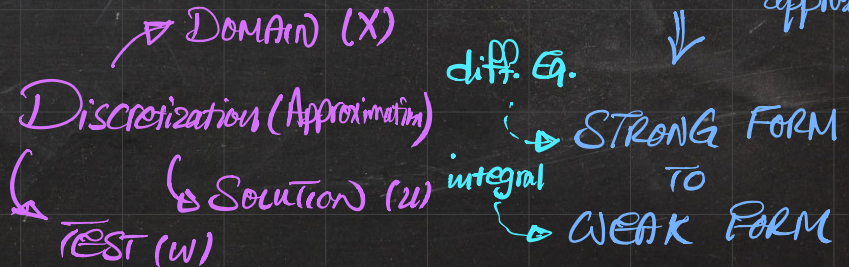 DOMAIN (X)
Discretization (Approximation)
SOLUTION (U)
TEST (W)
diff. Eq.
STRONG FORM
TO
integral
WEAK FORM